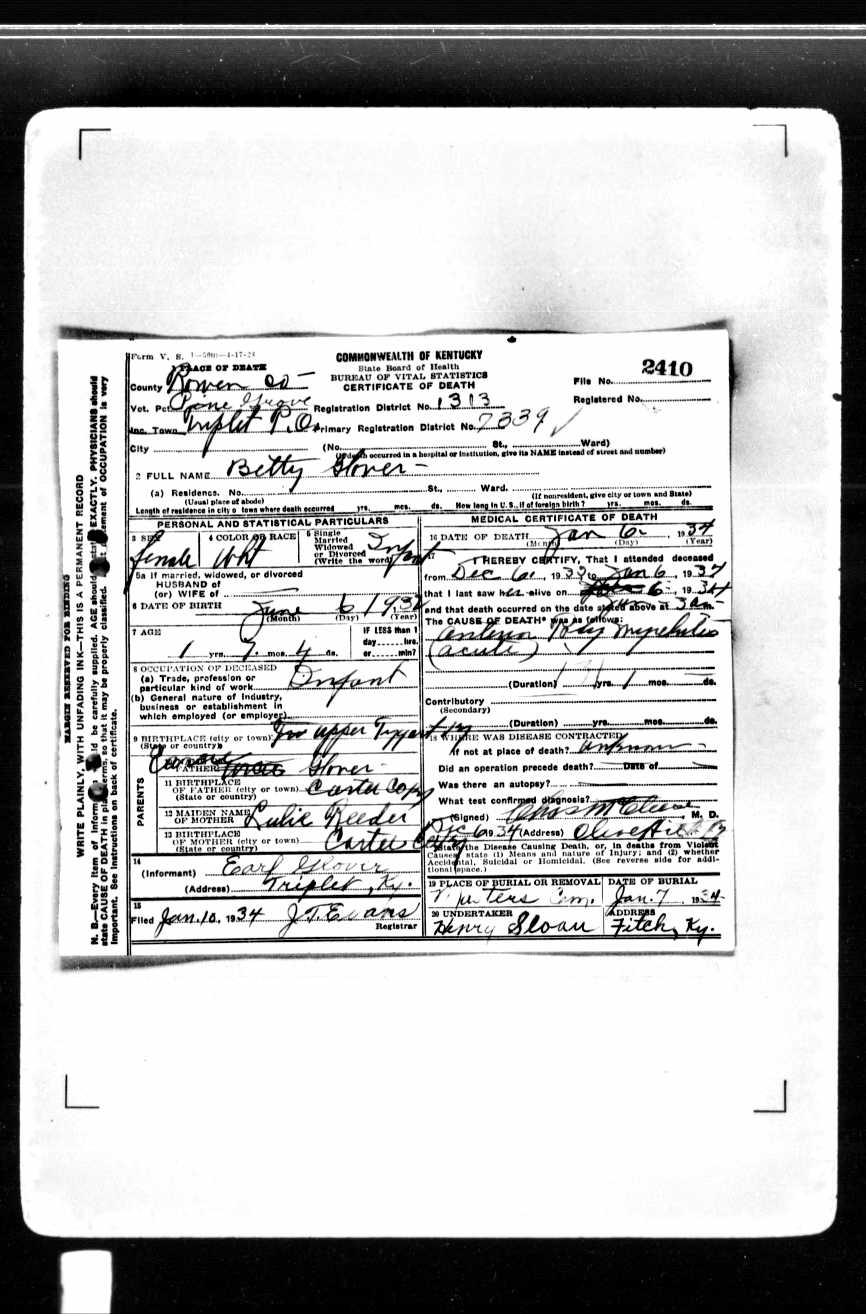 Form V. S. 1-50m-4-17-28
COMMONWEALTH OF KENTUCKY
State Board of Health
BUREAU OF VITAL STATISTICS
CERTIFICATE OF DEATH
File No. 2410
Registered No.
PLACE OF DEATH
County Rowen Co
Vot. Pct. Pine Grove Registration District No. 1313
Inc. Town Triplet P.O. Primary Registration District No. 7339
City (No. St., Ward)
(If death occurred in a hospital or institution, give its NAME instead of street and number)
2 FULL NAME Betty Glover
(a) Residence. No. St., Ward.
(Usual place of abode) (If nonresident, give city or town and State)
Length of residence in city or town where death occurred yrs. mos. ds. How long in U. S., if of foreign birth? yrs. mos. ds.
PERSONAL AND STATISTICAL PARTICULARS
3 SEX female
4 COLOR OR RACE Wht
5 Single Married Widowed or Divorced (Write the word) Infant
5a If married, widowed, or divorced
HUSBAND of
(or) WIFE of
6 DATE OF BIRTH June 6 1932
(Month) (Day) (Year)
7 AGE
1 yrs. 7 mos. ds.
IF LESS than 1
day hrs.
or min?
8 OCCUPATION OF DECEASED
(a) Trade, profession or
particular kind of work Infant
(b) General nature of industry,
business or establishment in
which employed (or employer)
9 BIRTHPLACE (city or town) upper
(State or country)
PARENTS
FATHER Glover
11 BIRTHPLACE
OF FATHER (city or town) Carter
(State or country)
12 MAIDEN NAME
OF MOTHER Lulie Reeder
13 BIRTHPLACE
OF MOTHER (city or town) Carter
(State or country)
14
(Informant) Earl Glover
(Address) Triplet, Ky.
15
Filed Jan. 10, 1934 J.T. Evans
Registrar
MEDICAL CERTIFICATE OF DEATH
16 DATE OF DEATH Jan 6 1934
(Month) (Day) (Year)
17 I HEREBY CERTIFY, That I attended deceased
from Dec 6, 1933 to Jan 6, 1934
that I last saw her alive on 6, 1934
and that death occurred on the date stated above at 3 a m.
The CAUSE OF DEATH* was as follows:
(acute)
(Duration) yrs. 1 mos. ds.
Contributory
(Secondary)
(Duration) yrs. mos. ds.
18 WHERE WAS DISEASE CONTRACTED
if not at place of death? unknown
Did an operation precede death? Date of
Was there an autopsy?
What test confirmed diagnosis?
(Signed) , M. D.
6 1934 (Address) Olive Hill Ky
*State the Disease Causing Death, or, in deaths from Violent
Causes, state (1) Means and nature of Injury; and (2) whether
Accidental, Suicidal or Homicidal. (See reverse side for addi-
tional space.)
19 PLACE OF BURIAL OR REMOVAL
Cem.
DATE OF BURIAL
Jan. 7 1934
20 UNDERTAKER
Henry Sloan
ADDRESS
Fitch, Ky.
MARGIN RESERVED FOR BINDING
WRITE PLAINLY, WITH UNFADING INK—THIS IS A PERMANENT RECORD
N. B.—Every item of information should be carefully supplied. AGE should be stated EXACTLY. PHYSICIANS should
state CAUSE OF DEATH in plain terms, so that it may be properly classified. Exact statement of OCCUPATION is very
important. See instructions on back of certificate.